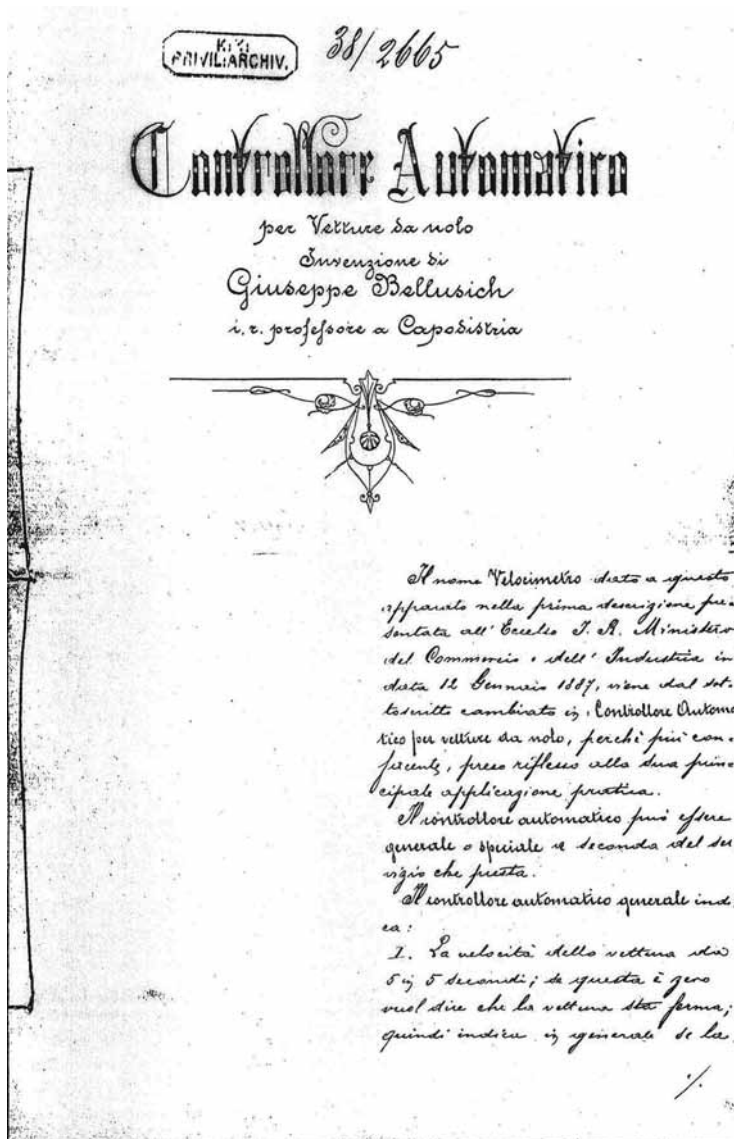 K. K.
PRIVIL: ARCHIV.
38/2665
Controllore Automatico
per Vetture da nolo
Invenzione di
Giuseppe Bellusich
i. r. professore a Capodistria
Il nome Velocimetro dato a questo
apparato nella prima descrizione pre-
sentata all' Eccelso I. R. Ministero
del Commercio e dell' Industria in
data 12 Gennaio 1887, viene dal sot-
toscritto cambiato in, Controllore Automa
tico per vetture da nolo, perchè più con-
facente, preso riflesso alla sua prin-
cipale applicazione pratica.
Il controllore automatico può essere
generale o speciale a seconda del ser
vigio che presta.
Il controllore automatico generale indi
ca:
I. La velocità della vettura da
5 in 5 secondi; se questa è zero
vuol dire che la vettura sta ferma;
quindi indica in generale se la
./.